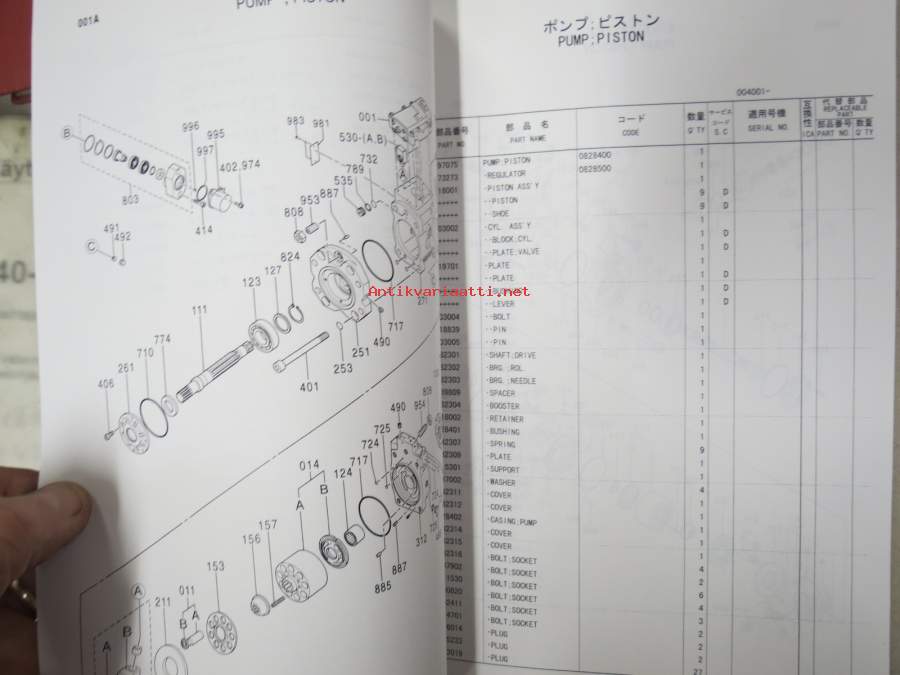 001A
PUMP;PISTON
B
996
995
997
402,974
803
414
491
492
C
983
981
001
530-(A,B)
732
789
535
887
953
808
A
824
127
123
111
774
710
261
406
717
490
251
253
401
271
808
954
490
725
724
717
124
014
A
B
157
156
153
011
211
A
B
A
B
A
312
887
885
ポンプ;ピストン
PUMP;PISTON
004001-
部品番号 部品名 コード 数量 サービスコード 適用号機 互換性 代替部品
REPLACEABLE PART
PART NO. PART NAME CODE Q'TY S.C SERIAL NO. ICA 部品番号 数量
PART NO. Q'TY
97075 PUMP;PISTON 0828400 1
73273 ·REGULATOR 0828500 1
18001 ·PISTON ASS'Y 1
***** ··PISTON 9 D
***** ··SHOE 9 D
03002 ·CYL. ASS'Y 1
***** ··BLOCK;CYL. 1 D
***** ··PLATE;VALVE 1 D
19701 ·PLATE 1
***** ··PLATE 1 D
***** 1 D
***** ··LEVER 1 D
03004 ··BOLT 1
18839 ··PIN 1
03005 ··PIN 1
02301 ·SHAFT;DRIVE 1
02302 ·BRG.;ROL. 1
02303 ·BRG.;NEEDLE 1
·SPACER 1
02304 ·BOOSTER 1
18002 ·RETAINER 1
·BUSHING 1
02307 ·SPRING 9
·PLATE 1
·SUPPORT 1
·WASHER 4
02311 ·COVER 1
02312 ·COVER 1
·CASING;PUMP 1
02314 ·COVER 1
02315 ·COVER 1
·BOLT;SOCKET 4
·BOLT;SOCKET 2
·BOLT;SOCKET 6
·BOLT;SOCKET 4
·BOLT;SOCKET 3
·PLUG 2
·PLUG 2
·PLUG 27
Antikvariaatti.net